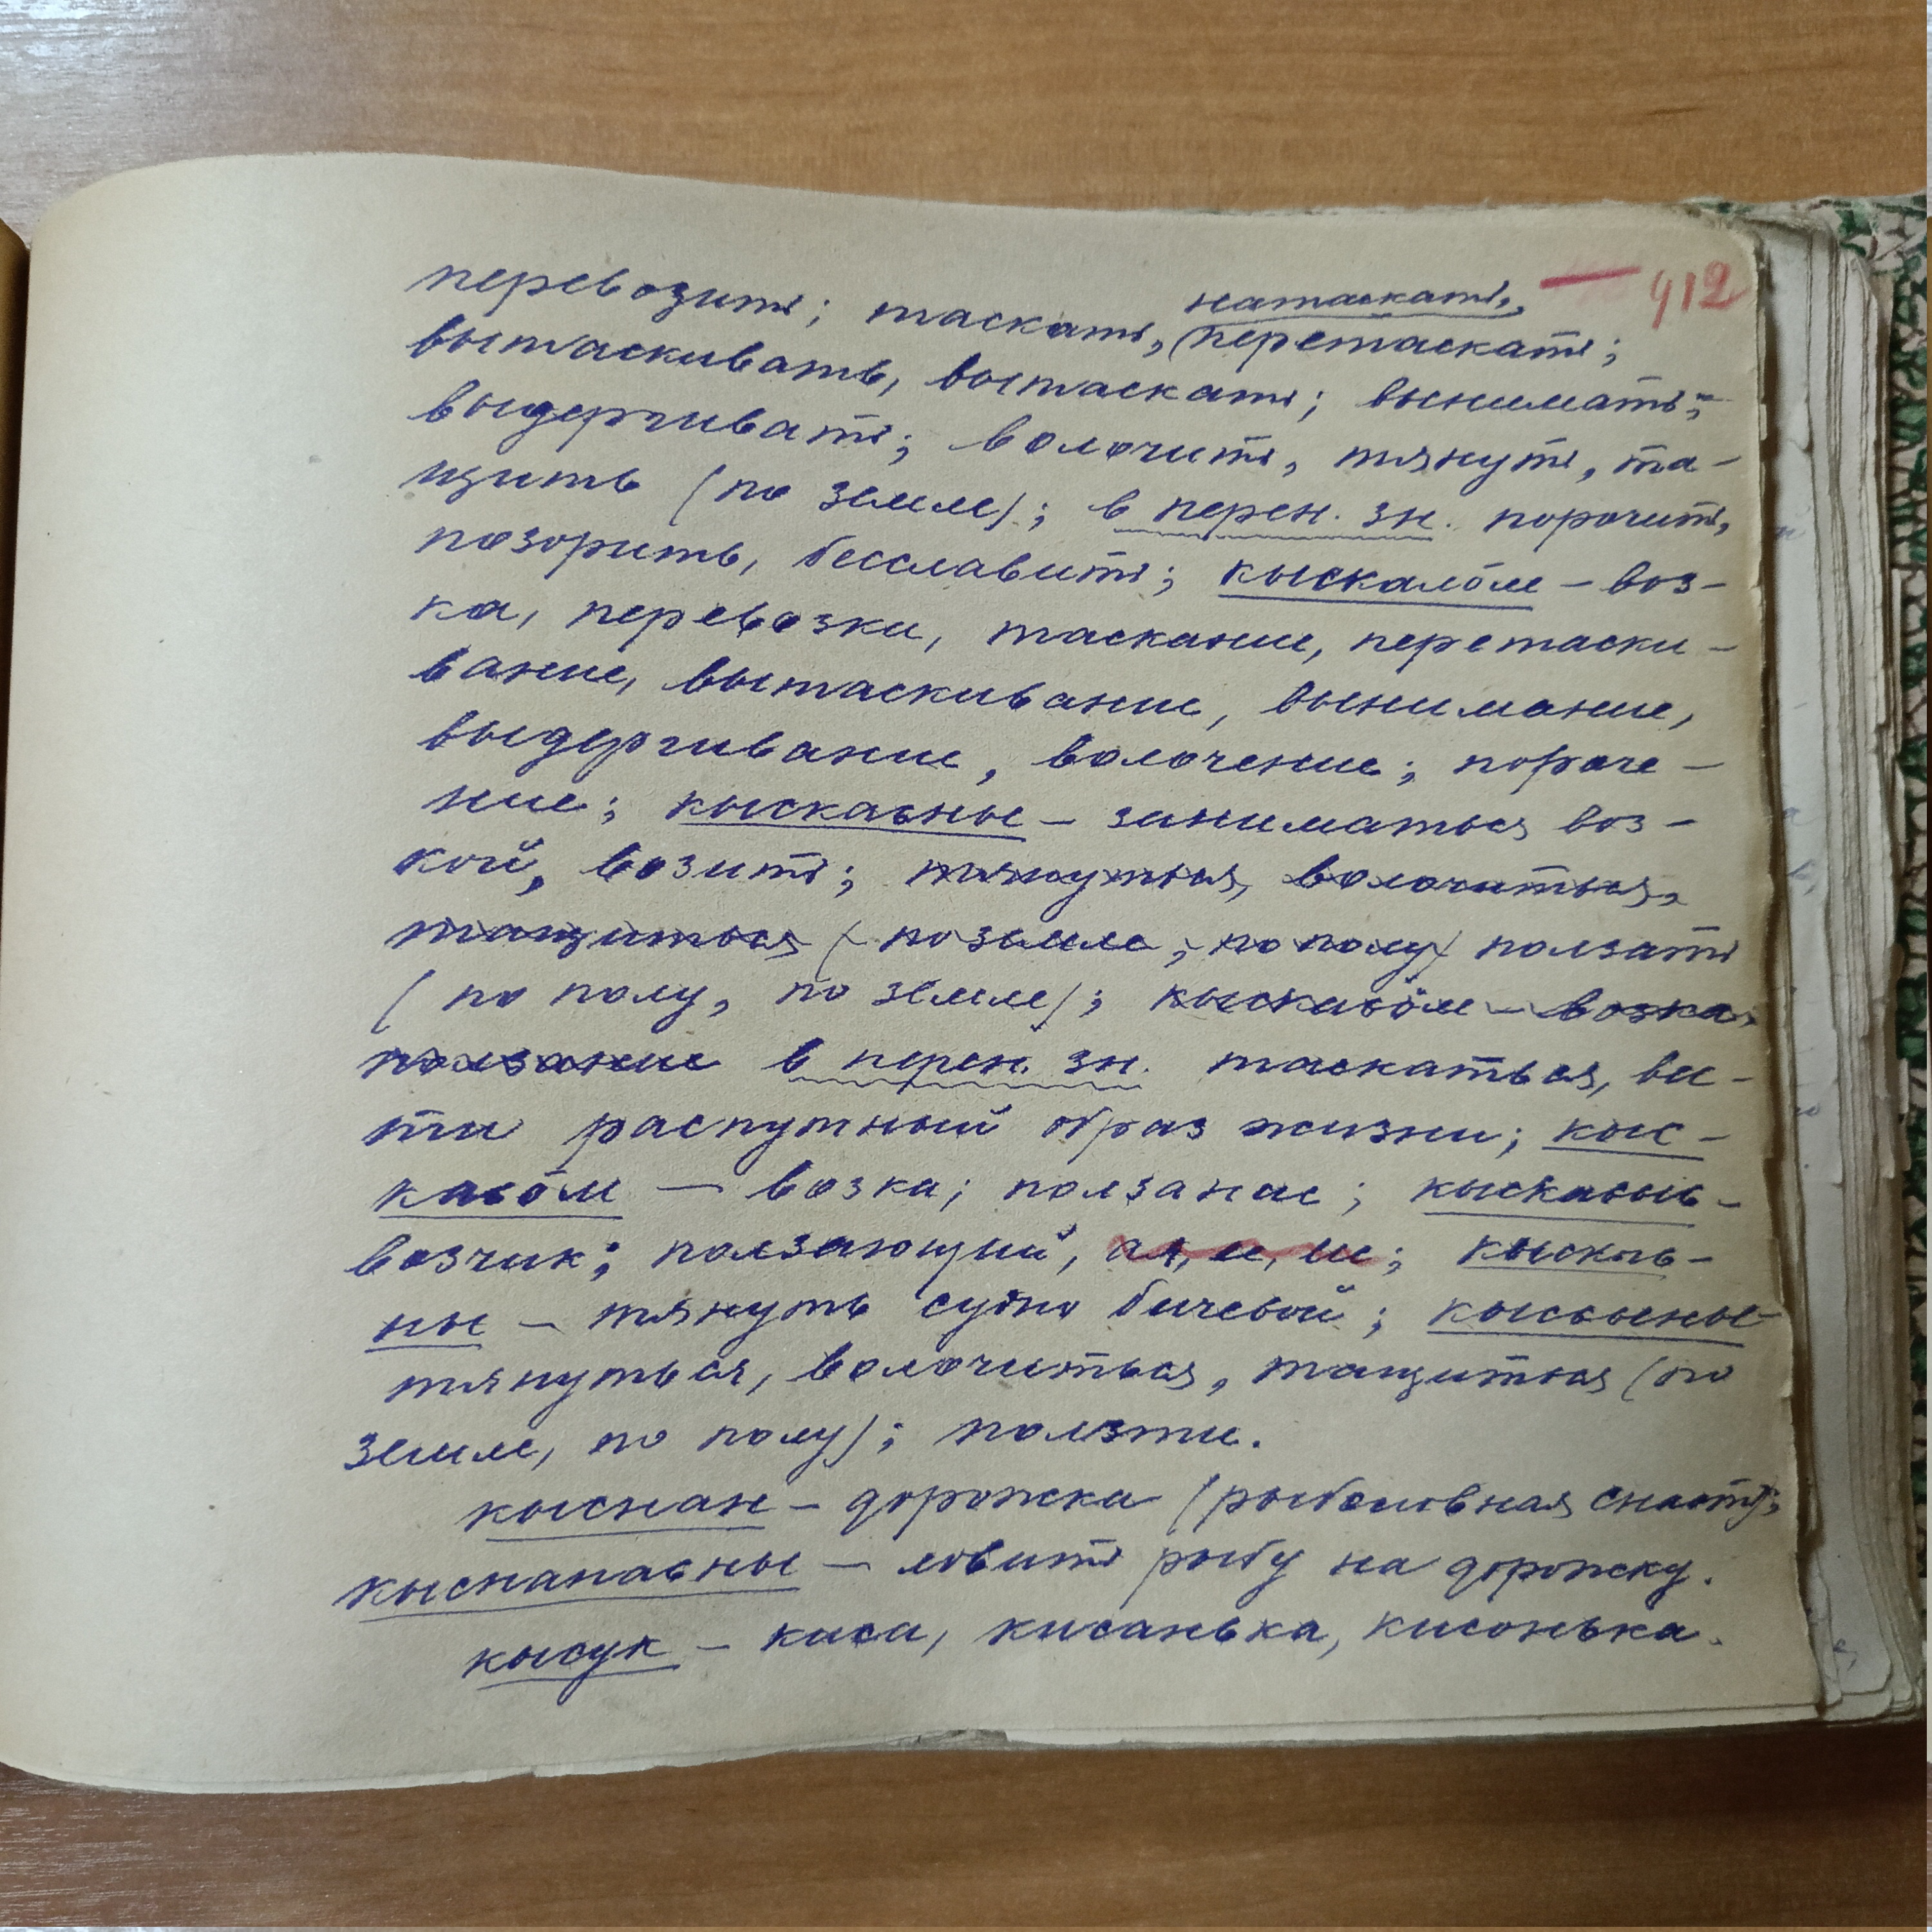 912
натаскать,
перевозить; таскать, перетаскать;
вытаскивать, вытаскать; вынимать;
выдергивать; волочить, тянуть, та-
щить (по земле); в перен. зн. порочить,
позорить, бесславить; кыскалӧм – воз-
ка, перевозки, таскание, перетаски-
вание, вытаскивание, вынимание,
выдергивание, волочение; пороче-
ние; кыскасьны – заниматься воз-
кой, возить; тянуться, волочиться,
тащиться (по земле, по полу) ползать
(по полу, по земле); кыскасьӧм – возка,
ползание в перен. зн. таскаться, ве-
сти распутный образ жизни; кыс-
касьӧм – возка; ползание; кыскасьысь –
возчик; ползающий, ая, ее, ие; кыскыв-
ны – тянуть судно бичевой; кыссьыны –
тянуться, волочиться, тащиться (по
земле, по полу); ползти.
кыснан – дорожка (рыболовная снасть);
кыснанасьны – ловить рыбу на дорожку.
кысук – киса, кисанька, кисонька.